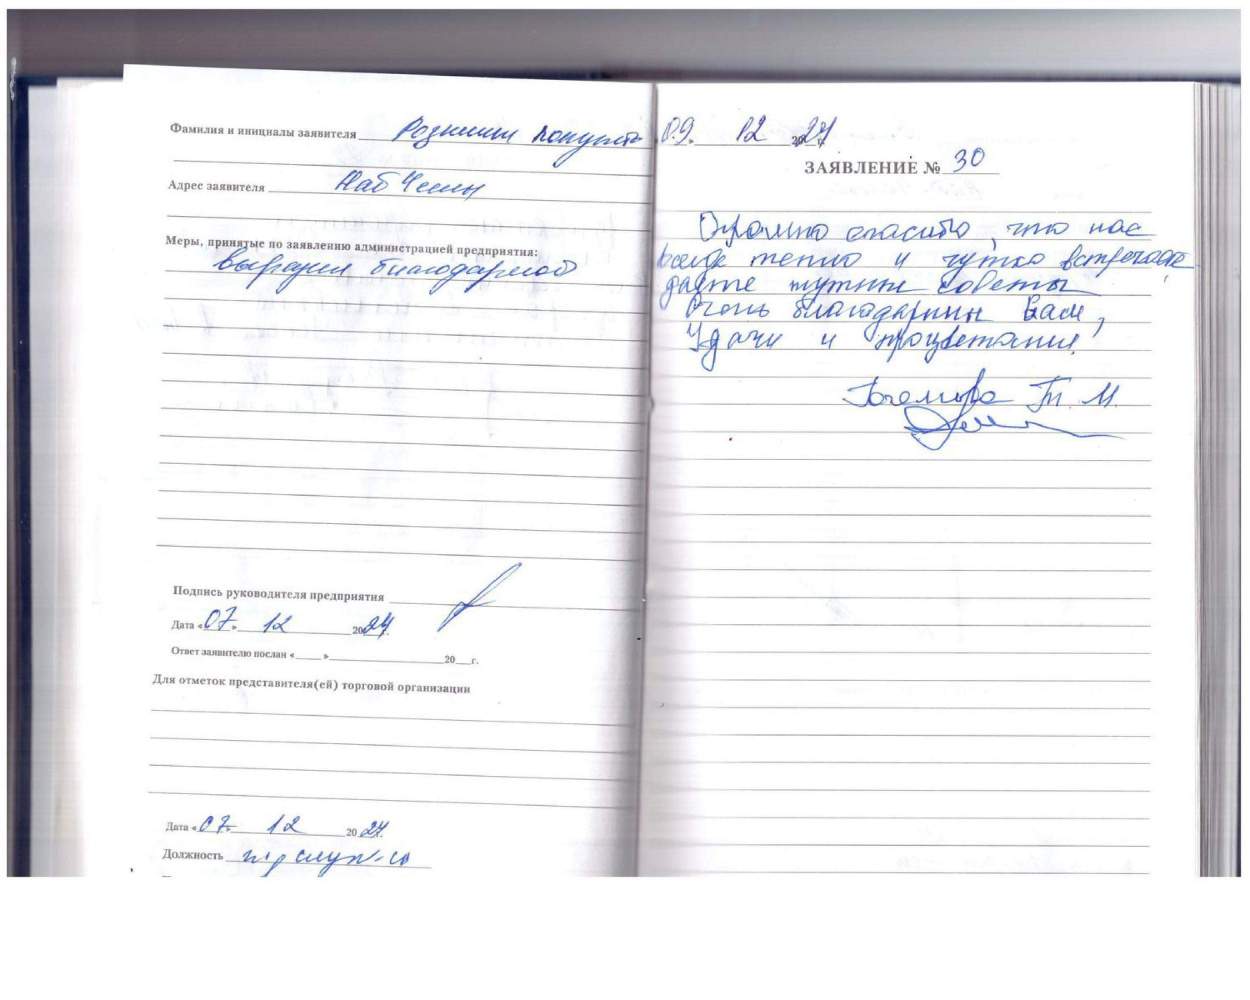 Фамилия и инициалы заявителя
Адрес заявителя Наб Челны
Меры, принятые по заявлению администрацией предприятия:
благодарной
Подпись руководителя предприятия
Дата «07» 12 2024
Ответ заявителю послан «____» ____ 20__г.
Для отметок представителя(ей) торговой организации
Дата «07» 12 2024
Должность
09. 12 2024
ЗАЯВЛЕНИЕ № 30
Огромно спасибо, что нас
всегда тепло и чутко встречаете
даете нужные советы
Очень благодарны Вам,
Удачи и процветания!
Т. М.